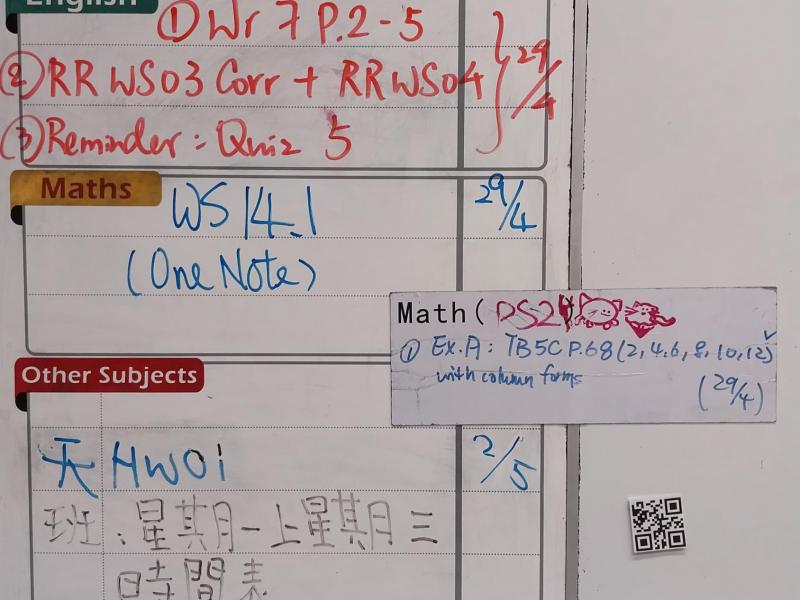 English
①Wr 7 P.2-5
②RR WS03 Corr + RR WS04
29/4
③Reminder: Quiz 5
Maths
WS 14.1
29/4
(One Note)
Math(
① Ex.A: TB5C P.68 (2, 4, 6, 8, 10, 12)
with column forms
(29/4)
Other Subjects
HW01
2/5
班:星期一上星期三
時間表